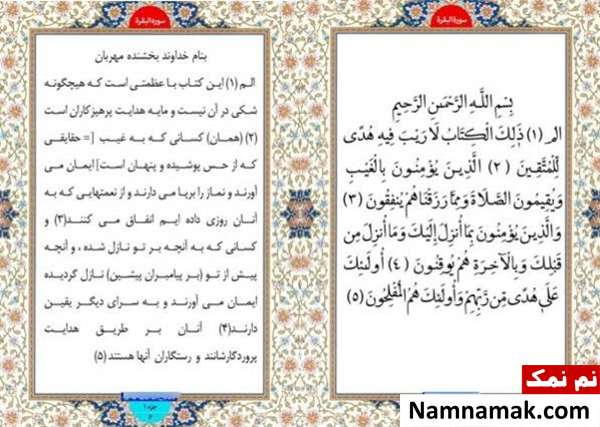 سورة البقرة
بِسْمِ اللَّهِ الرَّحْمَنِ الرَّحِيمِ
الم (۱) ذَٰلِكَ الْكِتَابُ لَا رَيْبَ فِيهِ هُدًى
لِّلْمُتَّقِينَ (۲) الَّذِينَ يُؤْمِنُونَ بِالْغَيْبِ
وَيُقِيمُونَ الصَّلَاةَ وَمِمَّا رَزَقْنَاهُمْ يُنفِقُونَ (۳)
وَالَّذِينَ يُؤْمِنُونَ بِمَا أُنزِلَ إِلَيْكَ وَمَا أُنزِلَ مِن
قَبْلِكَ وَبِالْآخِرَةِ هُمْ يُوقِنُونَ (٤) أُولَئِكَ
عَلَى هُدًى مِّن رَّبِّهِمْ وَأُولَئِكَ هُمُ الْمُفْلِحُونَ (۵)
سورة البقرة
بنام خداوند بخشنده مهربان
الـم (۱) این کتاب با عظمتی است که هیچگونه
شکی در آن نیست و مایه هدایت پرهیزکاران است
(۲) (همان) کسانی که به غیب [= حقایقی
که از حس پوشیده و پنهان است] ایمان می
آورند و نماز را برپا می دارند و از نعمتهایی که به
آنان روزی داده ایم انفاق می کنند(۳) و
کسانی که به آنچه بر تو نازل شده ، و آنچه
پیش از تو (بر پیامبران پیشین) نازل گردیده
ایمان می آورند و به سرای دیگر یقین
دارند(۴) آنان بر طریق هدایت
پروردگارشانند و رستگاران آنها هستند (۵)
جزء ۱
نم نمک
Namnamak.com